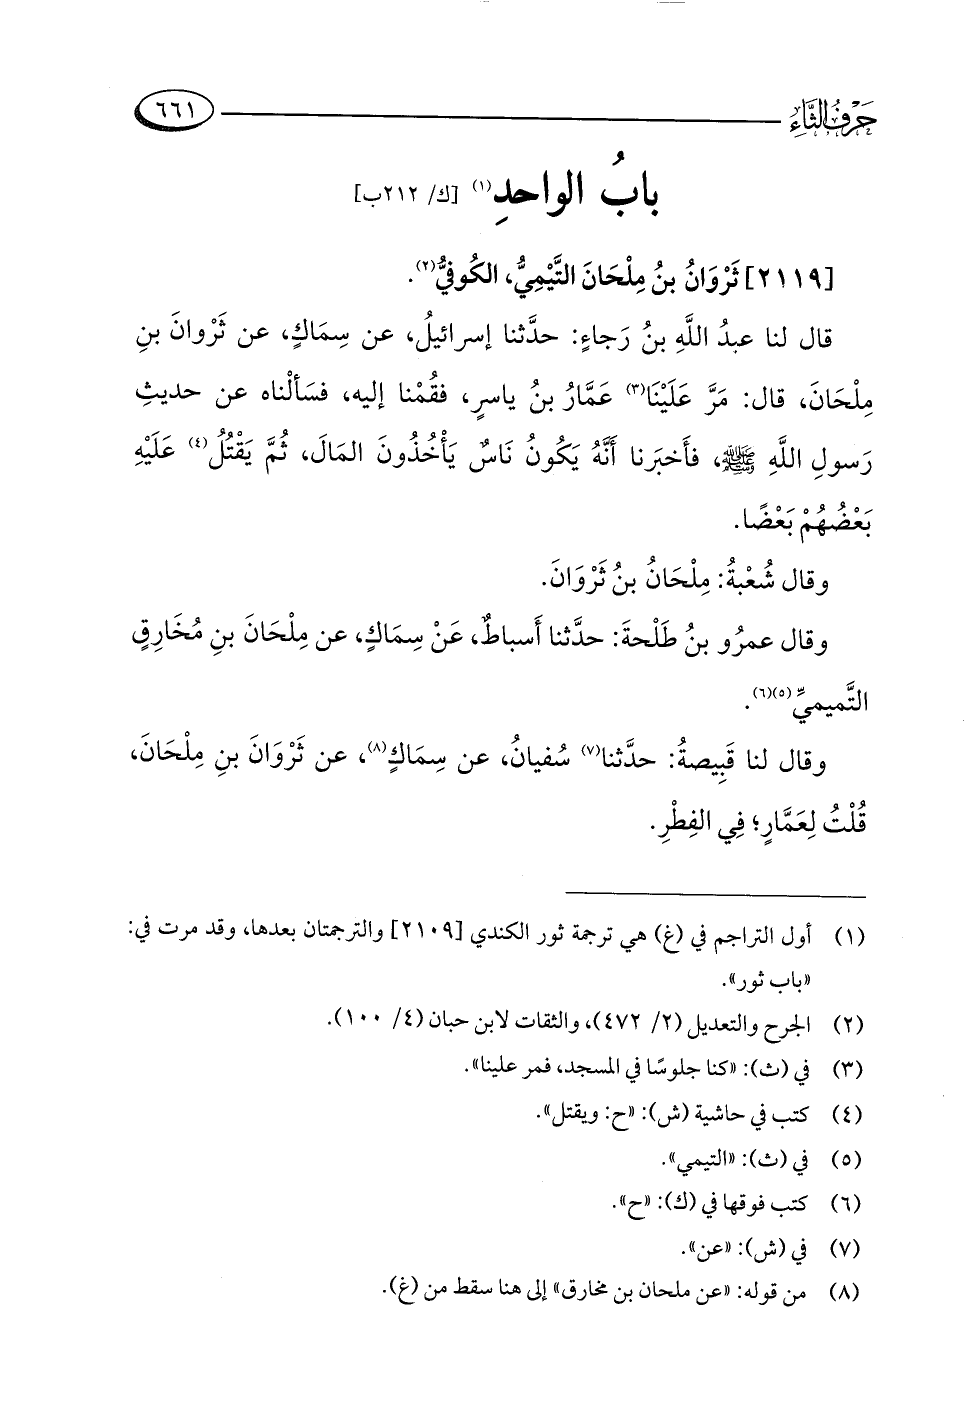 حَرْفُ الثَّاءِ ٦٦١
بابُ الواحدِ(١) [ك/ ٢١٢ب]
[٢١١٩] ثَرْوَانُ بنُ مِلْحَانَ التَّيْمِيُّ، الكُوفيُّ(٢).
قال لنا عبدُ اللَّهِ بنُ رَجاءٍ: حدَّثنا إسرائيلُ، عن سِمَاكٍ، عن ثَرْوانَ بنِ
مِلْحَانَ، قال: مَرَّ عَلَيْنَا(٣) عَمَّارُ بنُ ياسرٍ، فقُمْنا إليه، فسَألْناه عن حديثِ
رَسولِ اللَّهِ ﷺ، فأَخبَرنا أَنَّهُ يَكُونُ نَاسٌ يَأْخُذُونَ المَالَ، ثُمَّ يَقْتُلُ(٤) عَلَيْهِ
بَعْضُهُمْ بَعْضًا.
وقال شُعْبةُ: مِلْحَانُ بنُ ثَرْوَانَ.
وقال عمرُو بنُ طَلْحةَ: حدَّثنا أَسباطٌ، عَنْ سِمَاكٍ، عن مِلْحَانَ بنِ مُخَارِقٍ
التَّميميِّ(٥)(٦).
وقال لنا قَبِيصةُ: حدَّثنا(٧) سُفيانُ، عن سِمَاكٍ(٨)، عن ثَرْوَانَ بنِ مِلْحَانَ،
قُلْتُ لِعَمَّارٍ؛ فِي الفِطْرِ.
(١) أول التراجم في (غ) هي ترجمة ثور الكندي [٢١٠٩] والترجمتان بعدها، وقد مرت في:
«باب ثور».
(٢) الجرح والتعديل (٢/ ٤٧٢)، والثقات لابن حبان (٤/ ١٠٠).
(٣) في (ث): «كنا جلوسًا في المسجد، فمر علينا».
(٤) كتب في حاشية (ش): «ح: ويقتل».
(٥) في (ث): «التيمي».
(٦) كتب فوقها في (ك): «ح».
(٧) في (ش): «عن».
(٨) من قوله: «عن ملحان بن مخارق» إلى هنا سقط من (غ).